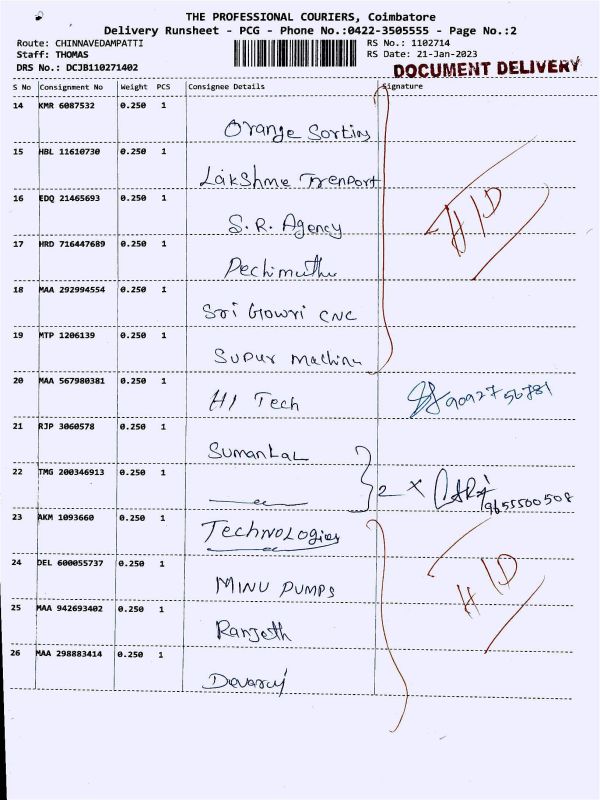 THE PROFESSIONAL COURIERS, Coimbatore
Delivery Runsheet - PCG - Phone No.:0422-3505555 - Page No.:2
Route: CHINNAVEDAMPATTI RS No.: 1102714
Staff: THOMAS RS Date: 21-Jan-2023
DRS No.: DCJB110271402 DOCUMENT DELIVERY
S No Consignment No Weight PCS Consignee Details Signature
14 KMR 6087532 0.250 1
Orange Sorting
15 HBL 11610730 0.250 1
Lakshme Trenport
16 EDQ 21465693 0.250 1
S.R. Agency
H/D
17 HRD 716447689 0.250 1
Pechimuthu
18 MAA 292994554 0.250 1
Sri Gowri CNC
19 MTP 1206139 0.250 1
Supur Machine
20 MAA 567980381 0.250 1
HI Tech 9092756781
21 RJP 3060578 0.250 1
Sumanlal
22 TMG 200346913 0.250 1
2 x 9655500508
23 AKM 1093660 0.250 1
Technologies
24 DEL 600055737 0.250 1
MINU PUMPS H/D
25 MAA 942693402 0.250 1
Ranjeth
26 MAA 298883414 0.250 1
Devaraj